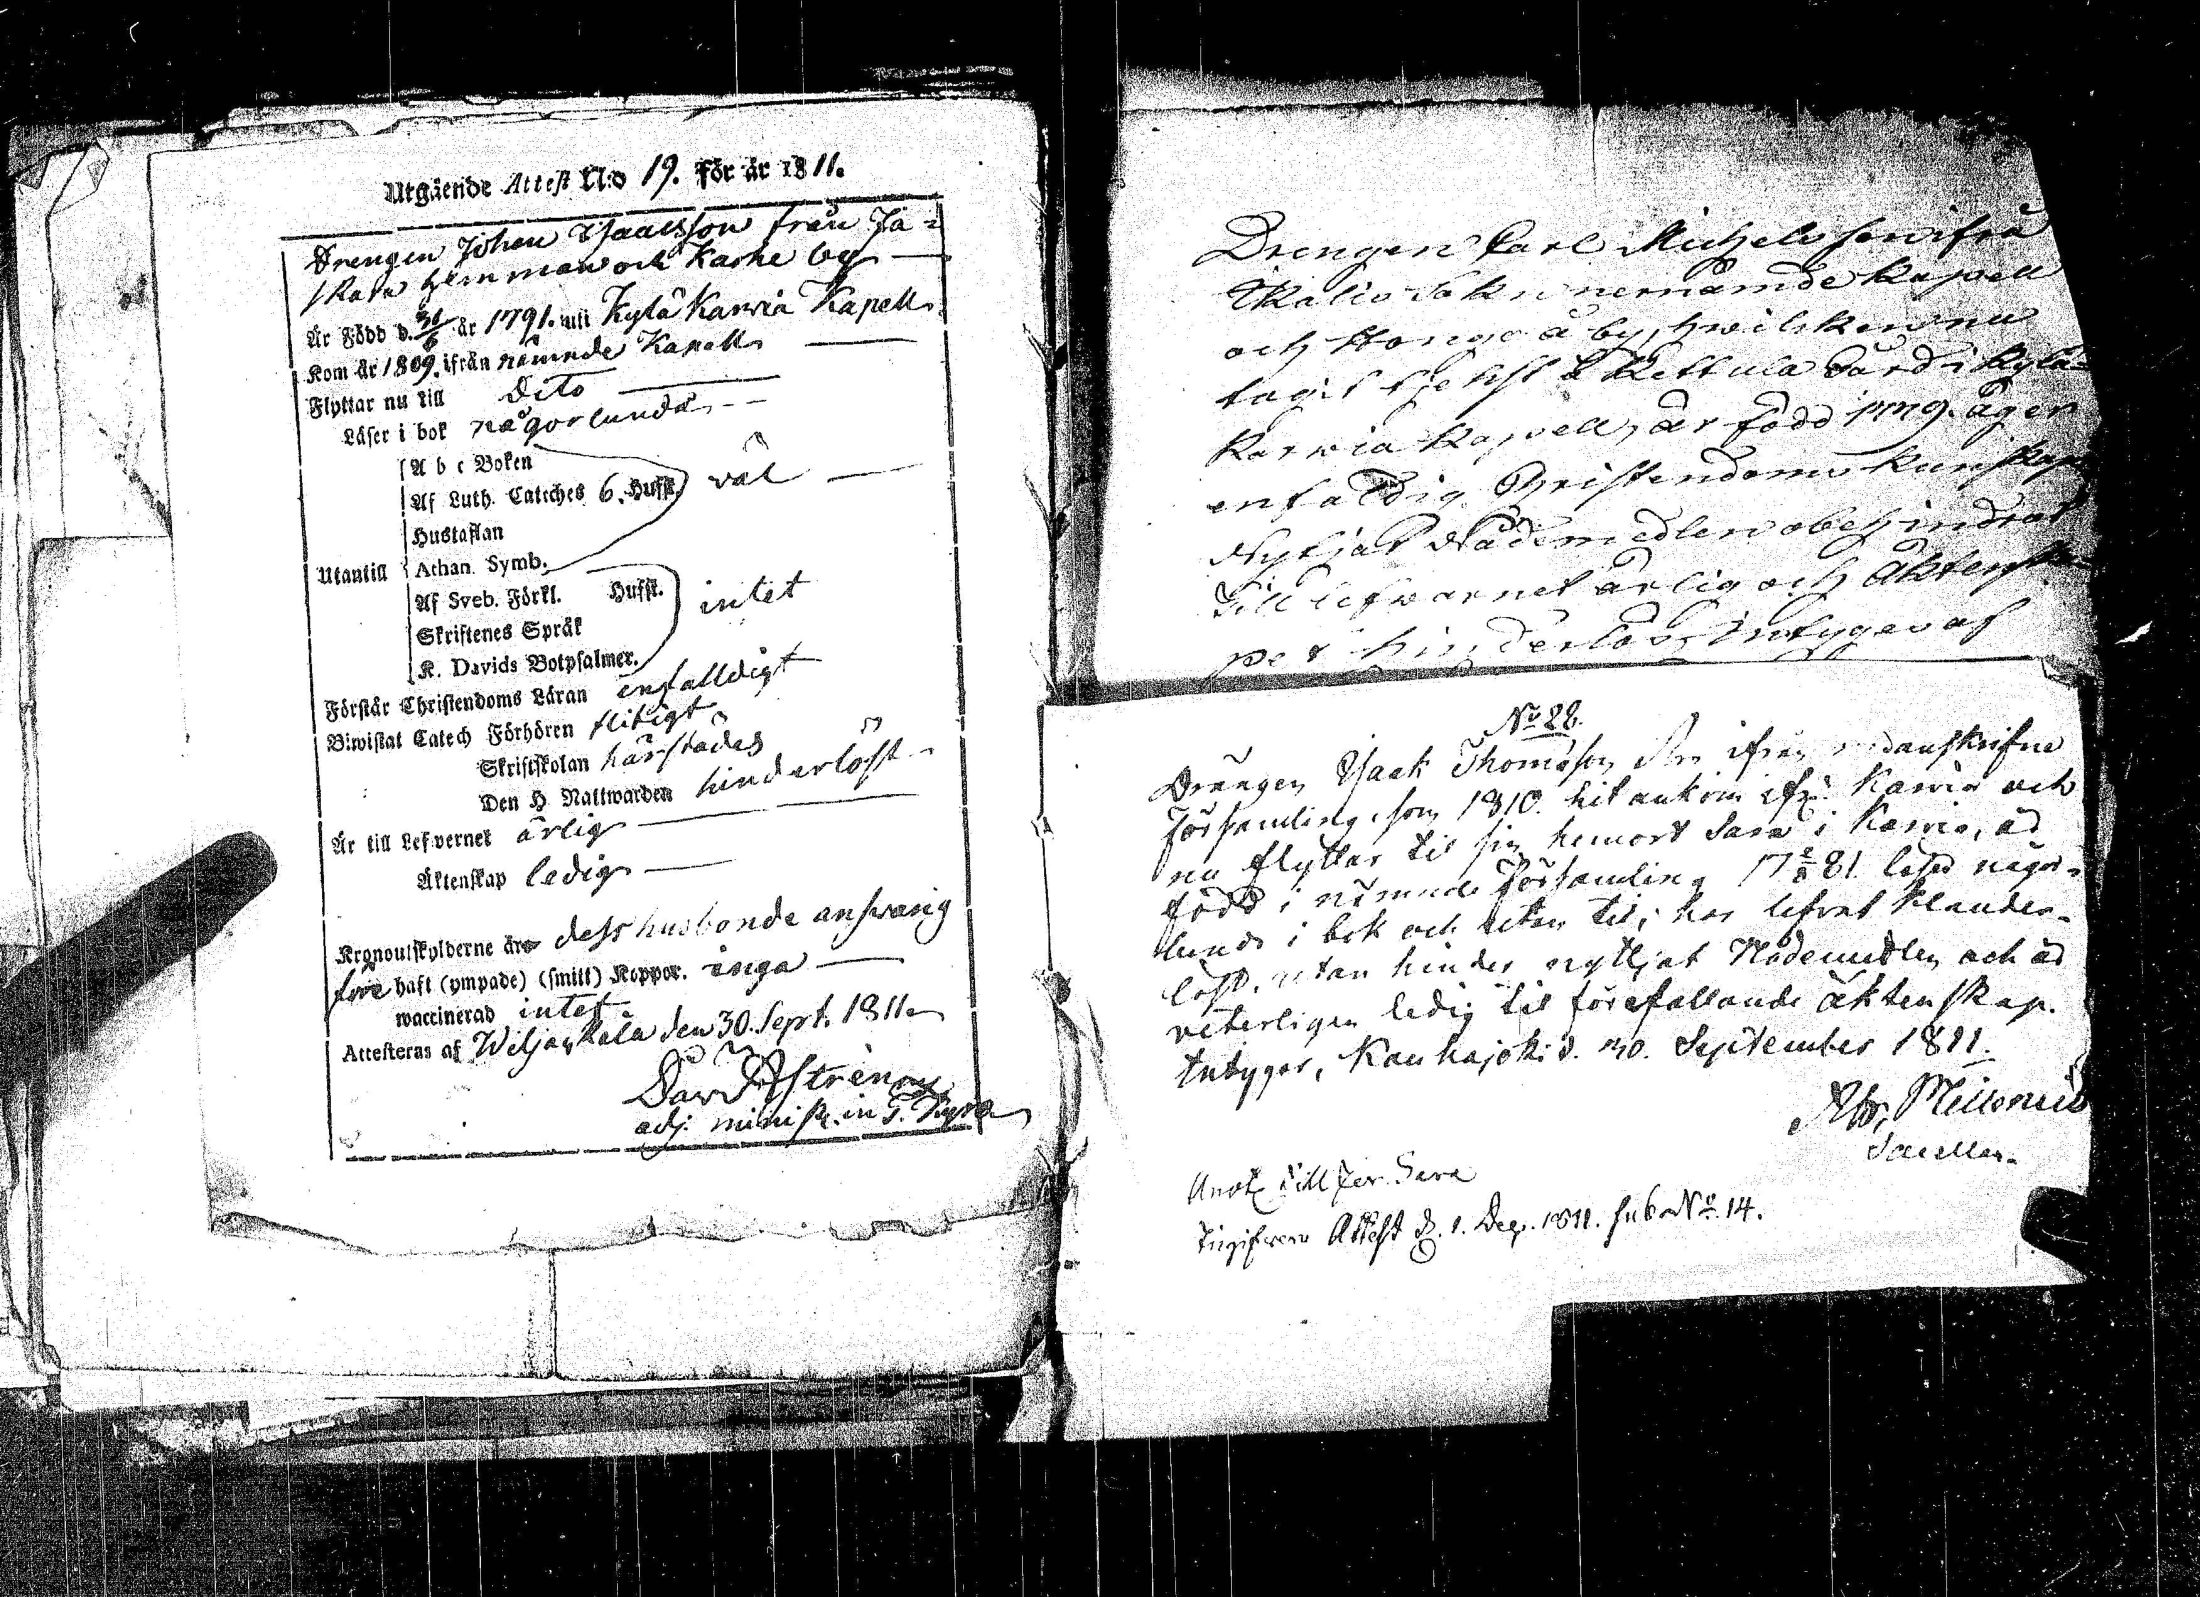 Utgående Attest N:o 19. För år 1811.
Drengen Johan Isaacsson från Jä-
skara hemman och Karhe by
Är Född d. 21/6 år 1791. uti Kyrö Karvia Kapell
Kom år 1809. ifrån nämnde Kapell
Flyttar nu till Dito
Läser i bok någorlunda
Utantill
A b c Boken
Af Luth. Cateches 6. Hufst. väl
Hustaflan
Athan. Symb.
Af Sveb. Förkl. Hufst. intet
Skriftenes Språk
K. Davids Botpsalmer.
Förstår Christendoms Läran enfalldigt
Biwistat Catech Förhören flitigt
Skriftskolan härstädes
Den H. Nattwarden hinderlöst
Är till Lefvernet ärlig
Äktenskap ledig
Kronoutskylderne äro dess husbonde answarig
före haft (ympade) (smitt) Koppor. inga
waccinerad intet
Attesteras af Wiljakkala den 30. Sept. 1811
Dav. Astrén
adj. minist. in T. Kyro
Drengen Carl Michelsson ifrå
Ikalis Sokn nernämde Kapell
och Honga å by, hwilken nu
tagit tjenst å Kettula Gård i Kyrö
Karvia Kapell, är född 1779. äger
enfaldig Christendoms kunskap
Nytjat Nådemedlen obehindrat
Till lefwarnet ärlig och äktenska-
pet hinderlös, intygas af
N:o 22.
Drängen Isaak Thomasson ifrån
församling, som 1810. hit ankom ifr. Karvia och
nu flyttar til sin hemort Sara i Karvia, är
född i nämnde Församling 17 2/8 81. läser någor-
lunda i bok och utan til; har lefvat klander-
löst, utan hinder nyttjat Nådemedlen och är
veterligen ledig til förefallande äktenskap.
Intygar, Kauhajoki d. 30. September 1811.
Abr. Mellenius
Sacellan.
Anot. till Sara
Ingifven Attest d. 1. Dec. 1811. sub N:o 14.